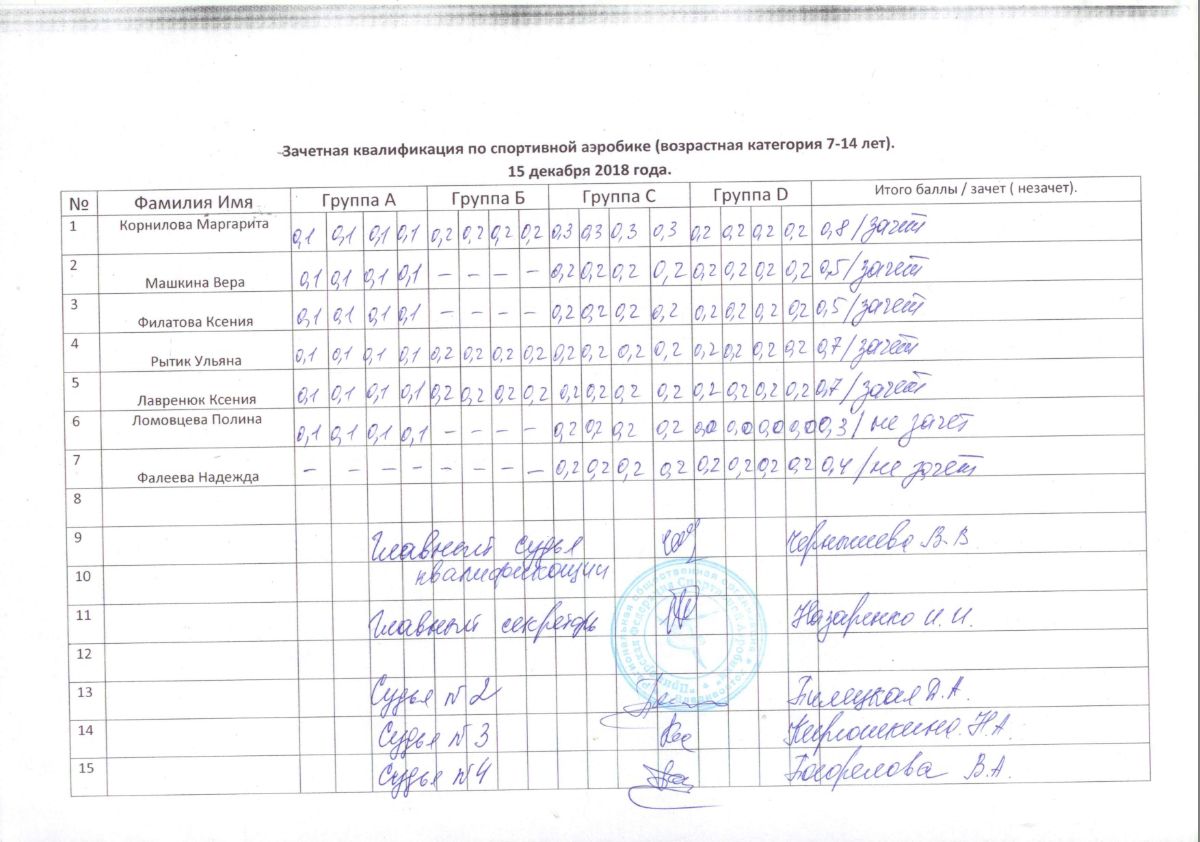 Зачетная квалификация по спортивной аэробике (возрастная категория 7-14 лет).
15 декабря 2018 года.
№ Фамилия Имя Группа А Группа Б Группа С Группа D Итого баллы / зачет ( незачет).
1 Корнилова Маргарита 0,1 0,1 0,1 0,1 0,2 0,2 0,2 0,2 0,3 0,3 0,3 0,3 0,2 0,2 0,2 0,2 0,8/зачет
2 Машкина Вера 0,1 0,1 0,1 0,1 – – – – 0,2 0,2 0,2 0,2 0,2 0,2 0,2 0,2 0,5/зачет
3 Филатова Ксения 0,1 0,1 0,1 0,1 – – – – 0,2 0,2 0,2 0,2 0,2 0,2 0,2 0,2 0,5/зачет
4 Рытик Ульяна 0,1 0,1 0,1 0,1 0,2 0,2 0,2 0,2 0,2 0,2 0,2 0,2 0,2 0,2 0,2 0,2 0,7/зачет
5 Лавренюк Ксения 0,1 0,1 0,1 0,1 0,2 0,2 0,2 0,2 0,2 0,2 0,2 0,2 0,2 0,2 0,2 0,2 0,7/зачет
6 Ломовцева Полина 0,1 0,1 0,1 0,1 – – – – 0,2 0,2 0,2 0,2 0,0 0,0 0,0 0,0 0,3/не зачет
7 Фалеева Надежда – – – – – – – – 0,2 0,2 0,2 0,2 0,2 0,2 0,2 0,2 0,4/не зачет
8
9 Главный судья Чернышева В.В.
квалификации
10
11 Главный секретарь Назаренко И.И.
12
13 Судья №2 Билецкая Д.А.
14 Судья №3 Н.А.
15 Судья №4 В.А.